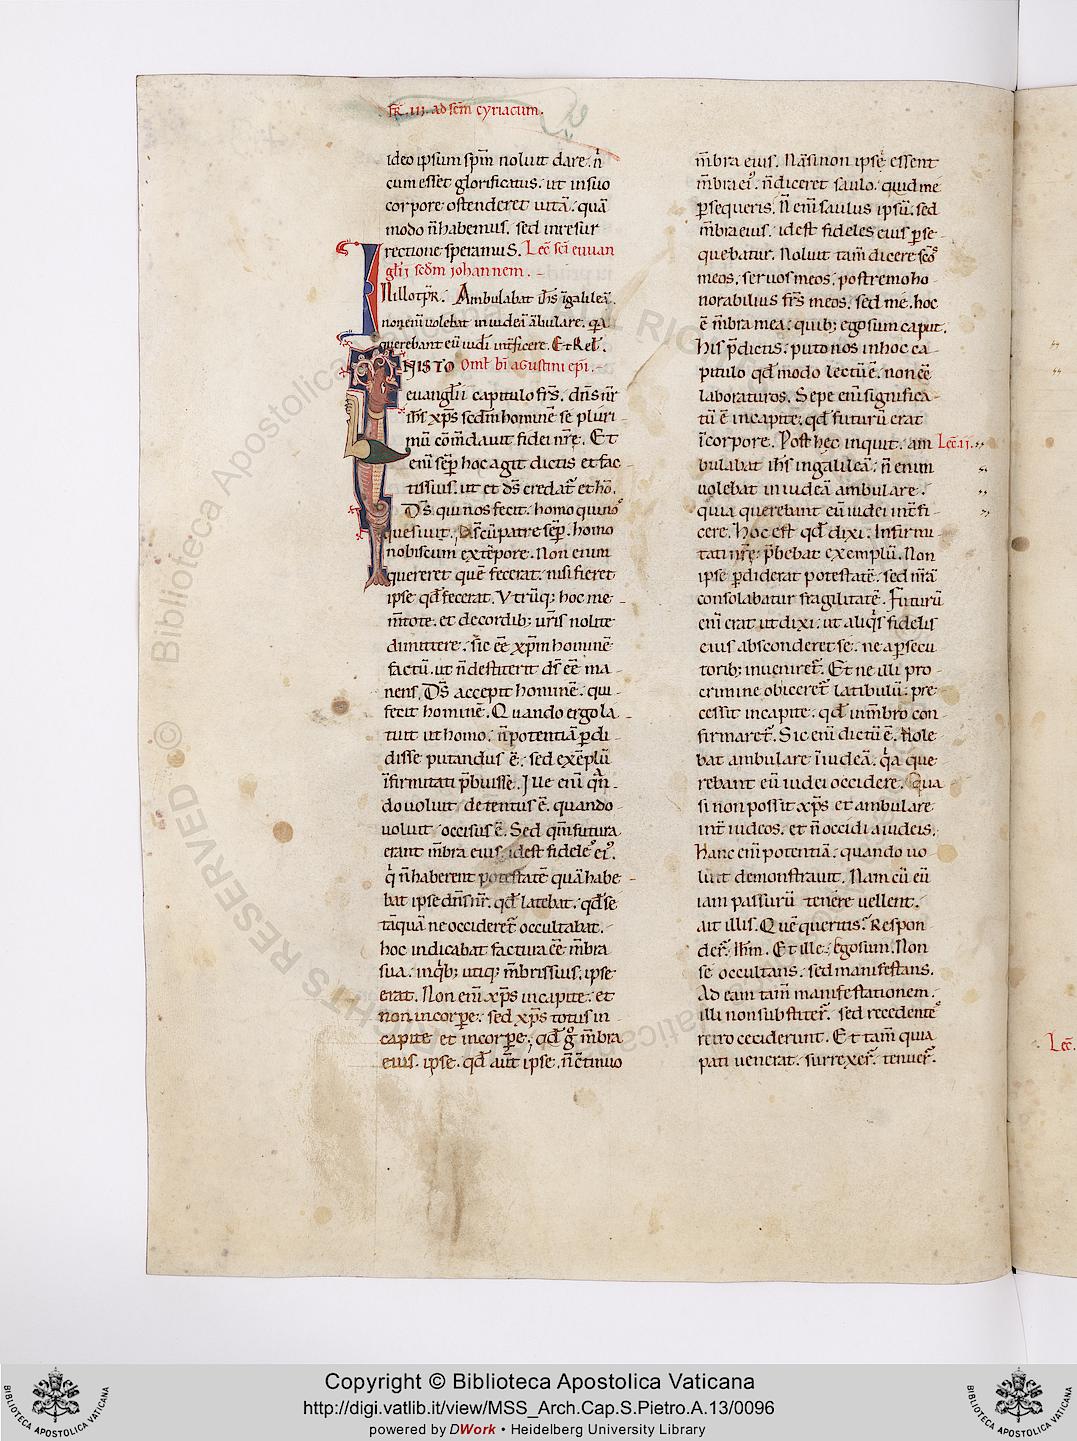 fr̄. iii. ad sc̄m cyriacum.
ideo ipsum sp̄m noluit dare. n̄
cum esset glorificatus. ut in suo
corpore ostenderet uitā. quā
modo n̄ habemus. sed in resur
rectione speramus. Lec̄ sc̄i euuan
gl̄ii scd̄m iohannem. -
In illo tp̄r. Ambulabat ih̄s ī galileā.
non enī uolebat in iudeā ābulare. q̄a
querebant eū iudī int̄ficere. Et Rel̄.
IN ISTO Oml̄ bī agustini ep̄i. -
euangl̄ii capitulo frs̄. dn̄s nr̄
ih̄s xp̄s scd̄m hominē se pluri-
mū com̄dauit fidei nrē. Et
enī sep̄ hoc agit dictis et fac
tis suis. ut et ds̄ credat̄ et ho.
Ds̄. qui nos fecit. homo qui no
quesiuit. Ds̄ cū patre sep̄. homo
nobiscum ex tēpore. Non enim
quereret quē fecerat. nisi fieret
ipse qd̄ fecerat. Vtrūq; hoc me-
m̄tote. et de cordib; ur̄is nolite
dimittere. sic eē xp̄m hominē
factū. ut n̄ destiterit ds̄ eē ma-
nens. Ds̄ accepit hominē. qui-
fecit hominē. Quando ergo la-
tuit ut homo. n̄ potentiā p̄di-
disse putandus ē. sed exēplū
īfirmitati p̄buisse. Ille enī qn̄-
do uoluit detentus ē. quando
uoluit occisus ē. Sed qm̄ futura
erant m̄bra eius. idest fidele ei.
q̄ n̄ haberent potestatē quā habe-
bat ipse dn̄s nr̄. qd̄ latebat. qd̄ se
tāquā ne occideret̄ occultabat.
hoc indicabat factura eē m̄bra
sua. in qb; utiq; m̄bris suis. ipse
erat. Non enī xp̄s in capite. et
non in corp̄e. sed xp̄s totus in
capite et in corp̄e. qd̄ g m̄bra
eius. ipse. qd̄ aūt ipse. n̄ c̄tinuo
m̄bra eius. Nā si non ipse essent
m̄bra ei. n̄ diceret saulo. quid me
p̄sequeris. N̄ enī saulus ipsū. sed
m̄bra eius. idest fideles eius p̄se-
quebatur. Noluit tam̄ dicere sc̄os
meos. seruos meos. postremo ho
norabilius frs̄ meos. sed me. hoc
ē m̄bra mea. quib; ego sum caput.
His p̄dictis. puto nos in hoc ca-
pitulo qd̄ modo lectū ē. non eē
laboraturos. Sepe enī significa-
tū ē in capite. qd̄ futurū erat
ī corpore. Post hec inquit. am Lec̄. ii.
bulabat ih̄s in galileā. n̄ enim
uolebat in iudeā ambulare.
quia querebant eū iudei int̄fi-
cere. Hoc est qd̄ dixi. Infirmi-
tati nrē p̄bebat exemplū. Non
ipse p̄diderat potestatē. sed nr̄ā
consolabatur fragilitatē. Futurū
enī erat ut dixi. ut aliqs fidelis
eius absconderet se. ne a p̄secu
torib; inueniret̄. Et ne illi pro
crimine obiceret̄ latibulū. pre
cessit in capite. qd̄ in m̄bro con-
firmaret̄. Sic enī dictū ē. Nole
bat ambulare ī iudeā. qa que
rebant eū iudei occidere. Qua
si non possit xp̄s et ambulare
int̄ iudeos. et n̄ occidi a iudeis.
Hanc enī potentiā. quando uo-
luit demonstrauit. Nam cū eū
iam passurū tenere uellent.
ait illis. Quē queritis. Respon
der̄. ih̄m. Et ille. Ego sum. Non
se occultans. sed manifestans.
Ad eam tam̄ manifestationem.
illi non substiter̄. sed recedente
retro ceciderunt. Et tam̄ quia
pati uenerat. surrexer̄. tenuer̄.
Lec̄.
Copyright © Biblioteca Apostolica Vaticana
http://digi.vatlib.it/view/MSS_Arch.Cap.S.Pietro.A.13/0096
powered by DWork • Heidelberg University Library